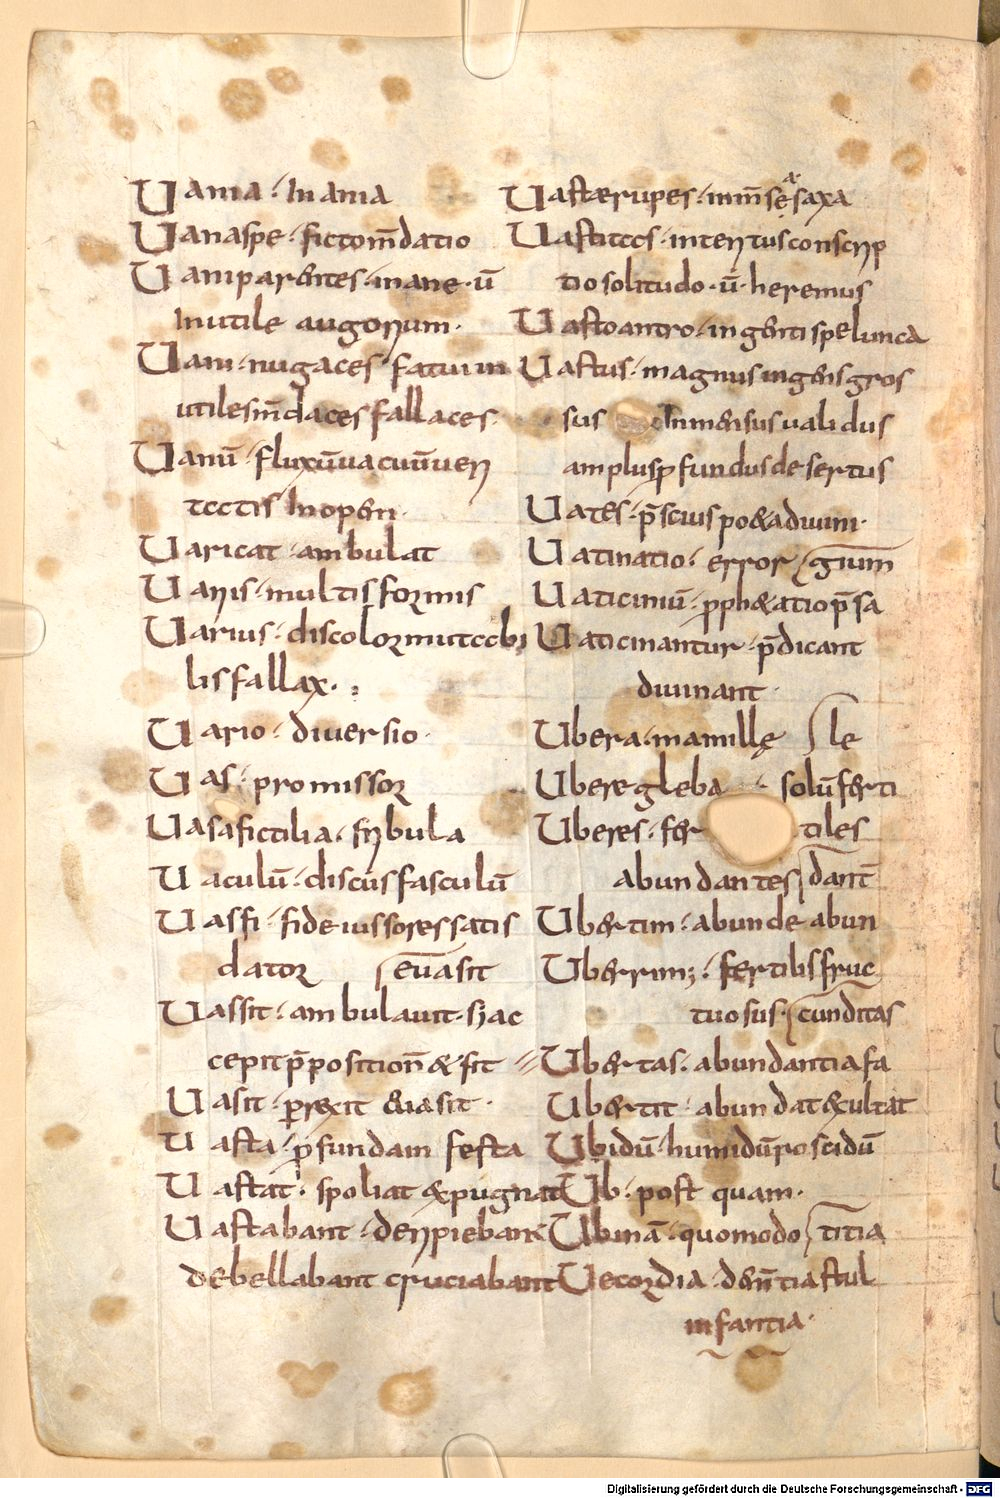 Uania · Inania
Uanaspe · fictom̄datio
Uaniparentes · inane · ū
Inutile augorium ·
Uani · nugaces fatui in
utiles m̄daces fallaces ·
Uanū · fluxū uacuū uen
tosis Inopem ·
Uaricat · ambulat
Uaris · multis formis
Uarius · discolor mutabi
lis fallax ·
Uario · diuersio ·
Uas · promissor
Uasa fictilia · fribula
Uaculū · discus fasculū
Uasfi · fideiussores satis
dator euasit
Uassit · ambulauit · si ac
cepit p̄position̄ & fit
Uasit · perrexit euasit ·
Uasta · profundam festa
Uastat · spoliat expugnat
Uastabant · deripiebant
debellabant cruciabant
Uasta erupes · inm̄se saxa
Uastitas · interitus conscrip
tio solitudo · ū · heremus
Uasto antro · ingenti spelunca
Uastus · magnus ingens gros
sus Inmensus ualidus
amplus pfundus desertus
Uates · p̄scius poeta diuini ·
Uatinatio · error gium
Uaticiniū · pphetatio p̄sa
Uaticinantur · p̄dicant
diuinant ·
Ubera · mamillę le
Ubere gleba · solū ferti
Uberes · fer tiles
abundantes dant̄
Ubertim · abunde abun
Uberrimꝫ · fertilis fruc
tuosus · cunditas
Ubertas · abundantia fa
Ubertit · abundat exultat
Ubidū · humidū roscidū
Ub · post quam ·
Ubinā · quomodo titia
Uecordia · dementia stul
infantia ·
Digitalisierung gefördert durch die Deutsche Forschungsgemeinschaft - DFG